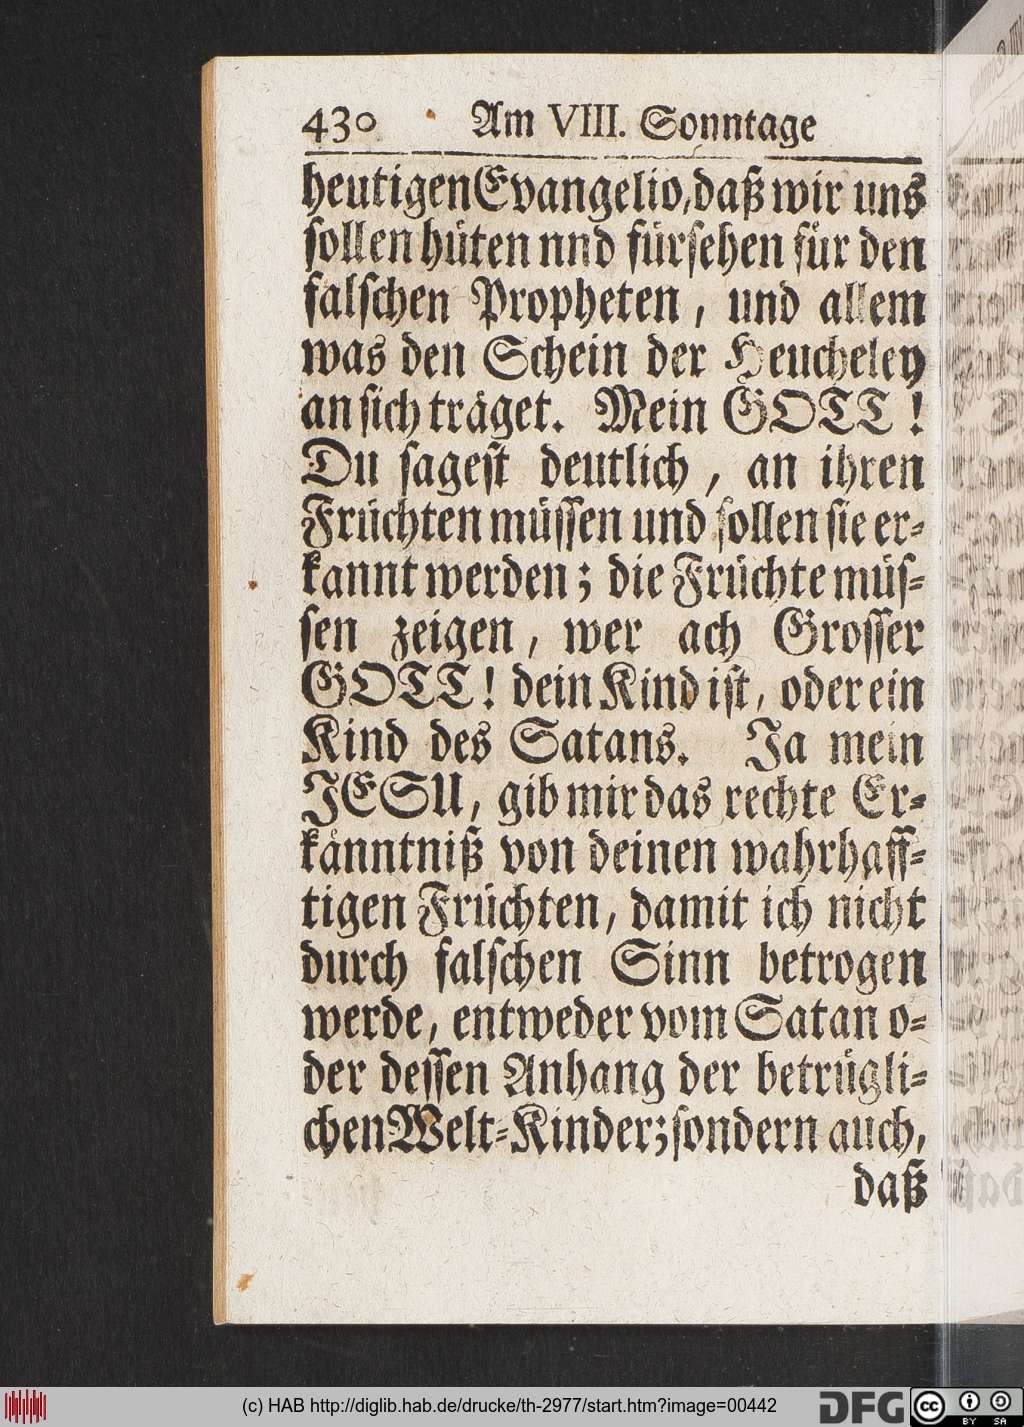 430 Am VIII. Sonntage
heutigen Evangelio, daß wir uns
sollen hüten nnd fürsehen für den
falschen Propheten, und allem
was den Schein der Heucheley
an sich träget. Mein GOTT!
Du sagest deutlich, an ihren
Früchten müssen und sollen sie er-
kannt werden; die Früchte müs-
sen zeigen, wer ach Grosser
GOTT! dein Kind ist, oder ein
Kind des Satans. Ja mein
JESU, gib mir das rechte Er-
känntniß von deinen wahrhaff-
tigen Früchten, damit ich nicht
durch falschen Sinn betrogen
werde, entweder vom Satan o-
der dessen Anhang der betrügli-
chen Welt-Kinder; sondern auch,
daß
(c) HAB http://diglib.hab.de/drucke/th-2977/start.htm?image=00442
DFG
cc BY SA